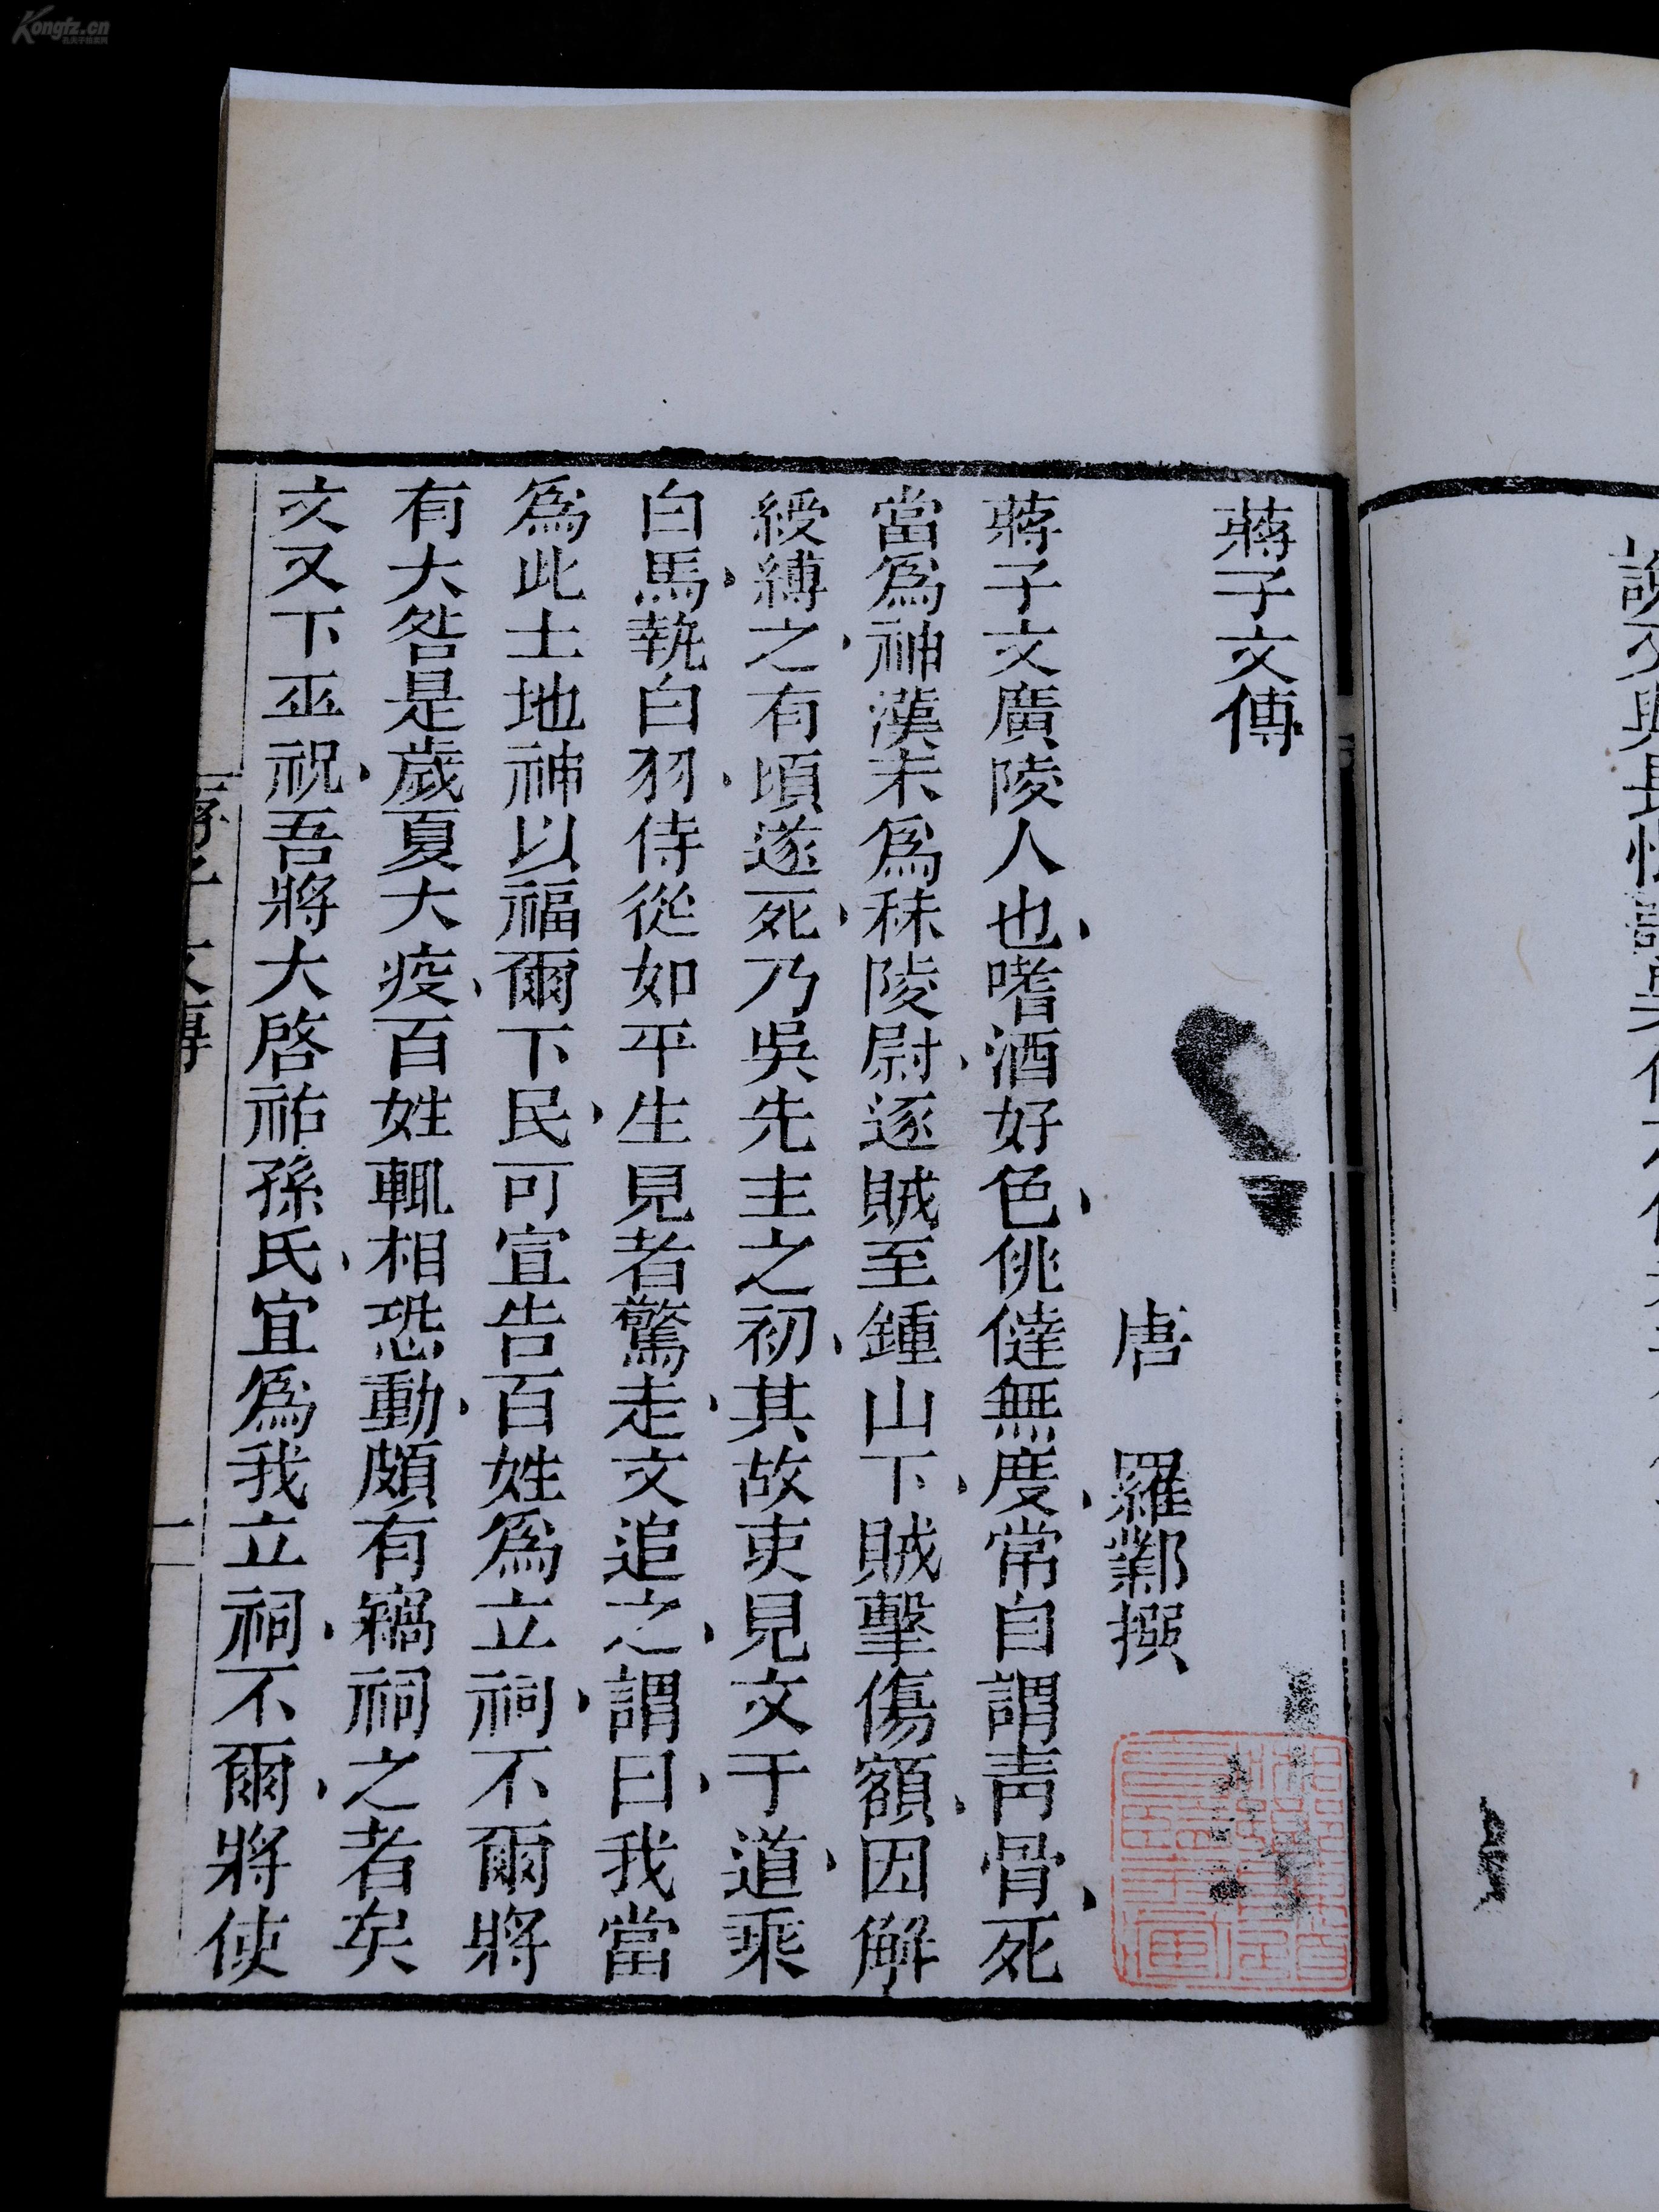 蔣子文傳
唐 羅鄴撰
蔣子文廣陵人也嗜酒好色佻㒓無度常自謂青骨死
當爲神漢末爲秣陵尉逐賊至鍾山下賊擊傷額因解
綬縛之有頃遂死乃吳先主之初其故吏見文于道乘
白馬執白羽侍從如平生見者驚走文追之謂曰我當
爲此土地神以福爾下民可宣告百姓爲立祠不爾將
有大咎是歲夏大疫百姓輒相恐動頗有竊祠之者矣
文又下巫祝吾將大啓祐孫氏宜爲我立祠不爾將使
Kongfz.cn